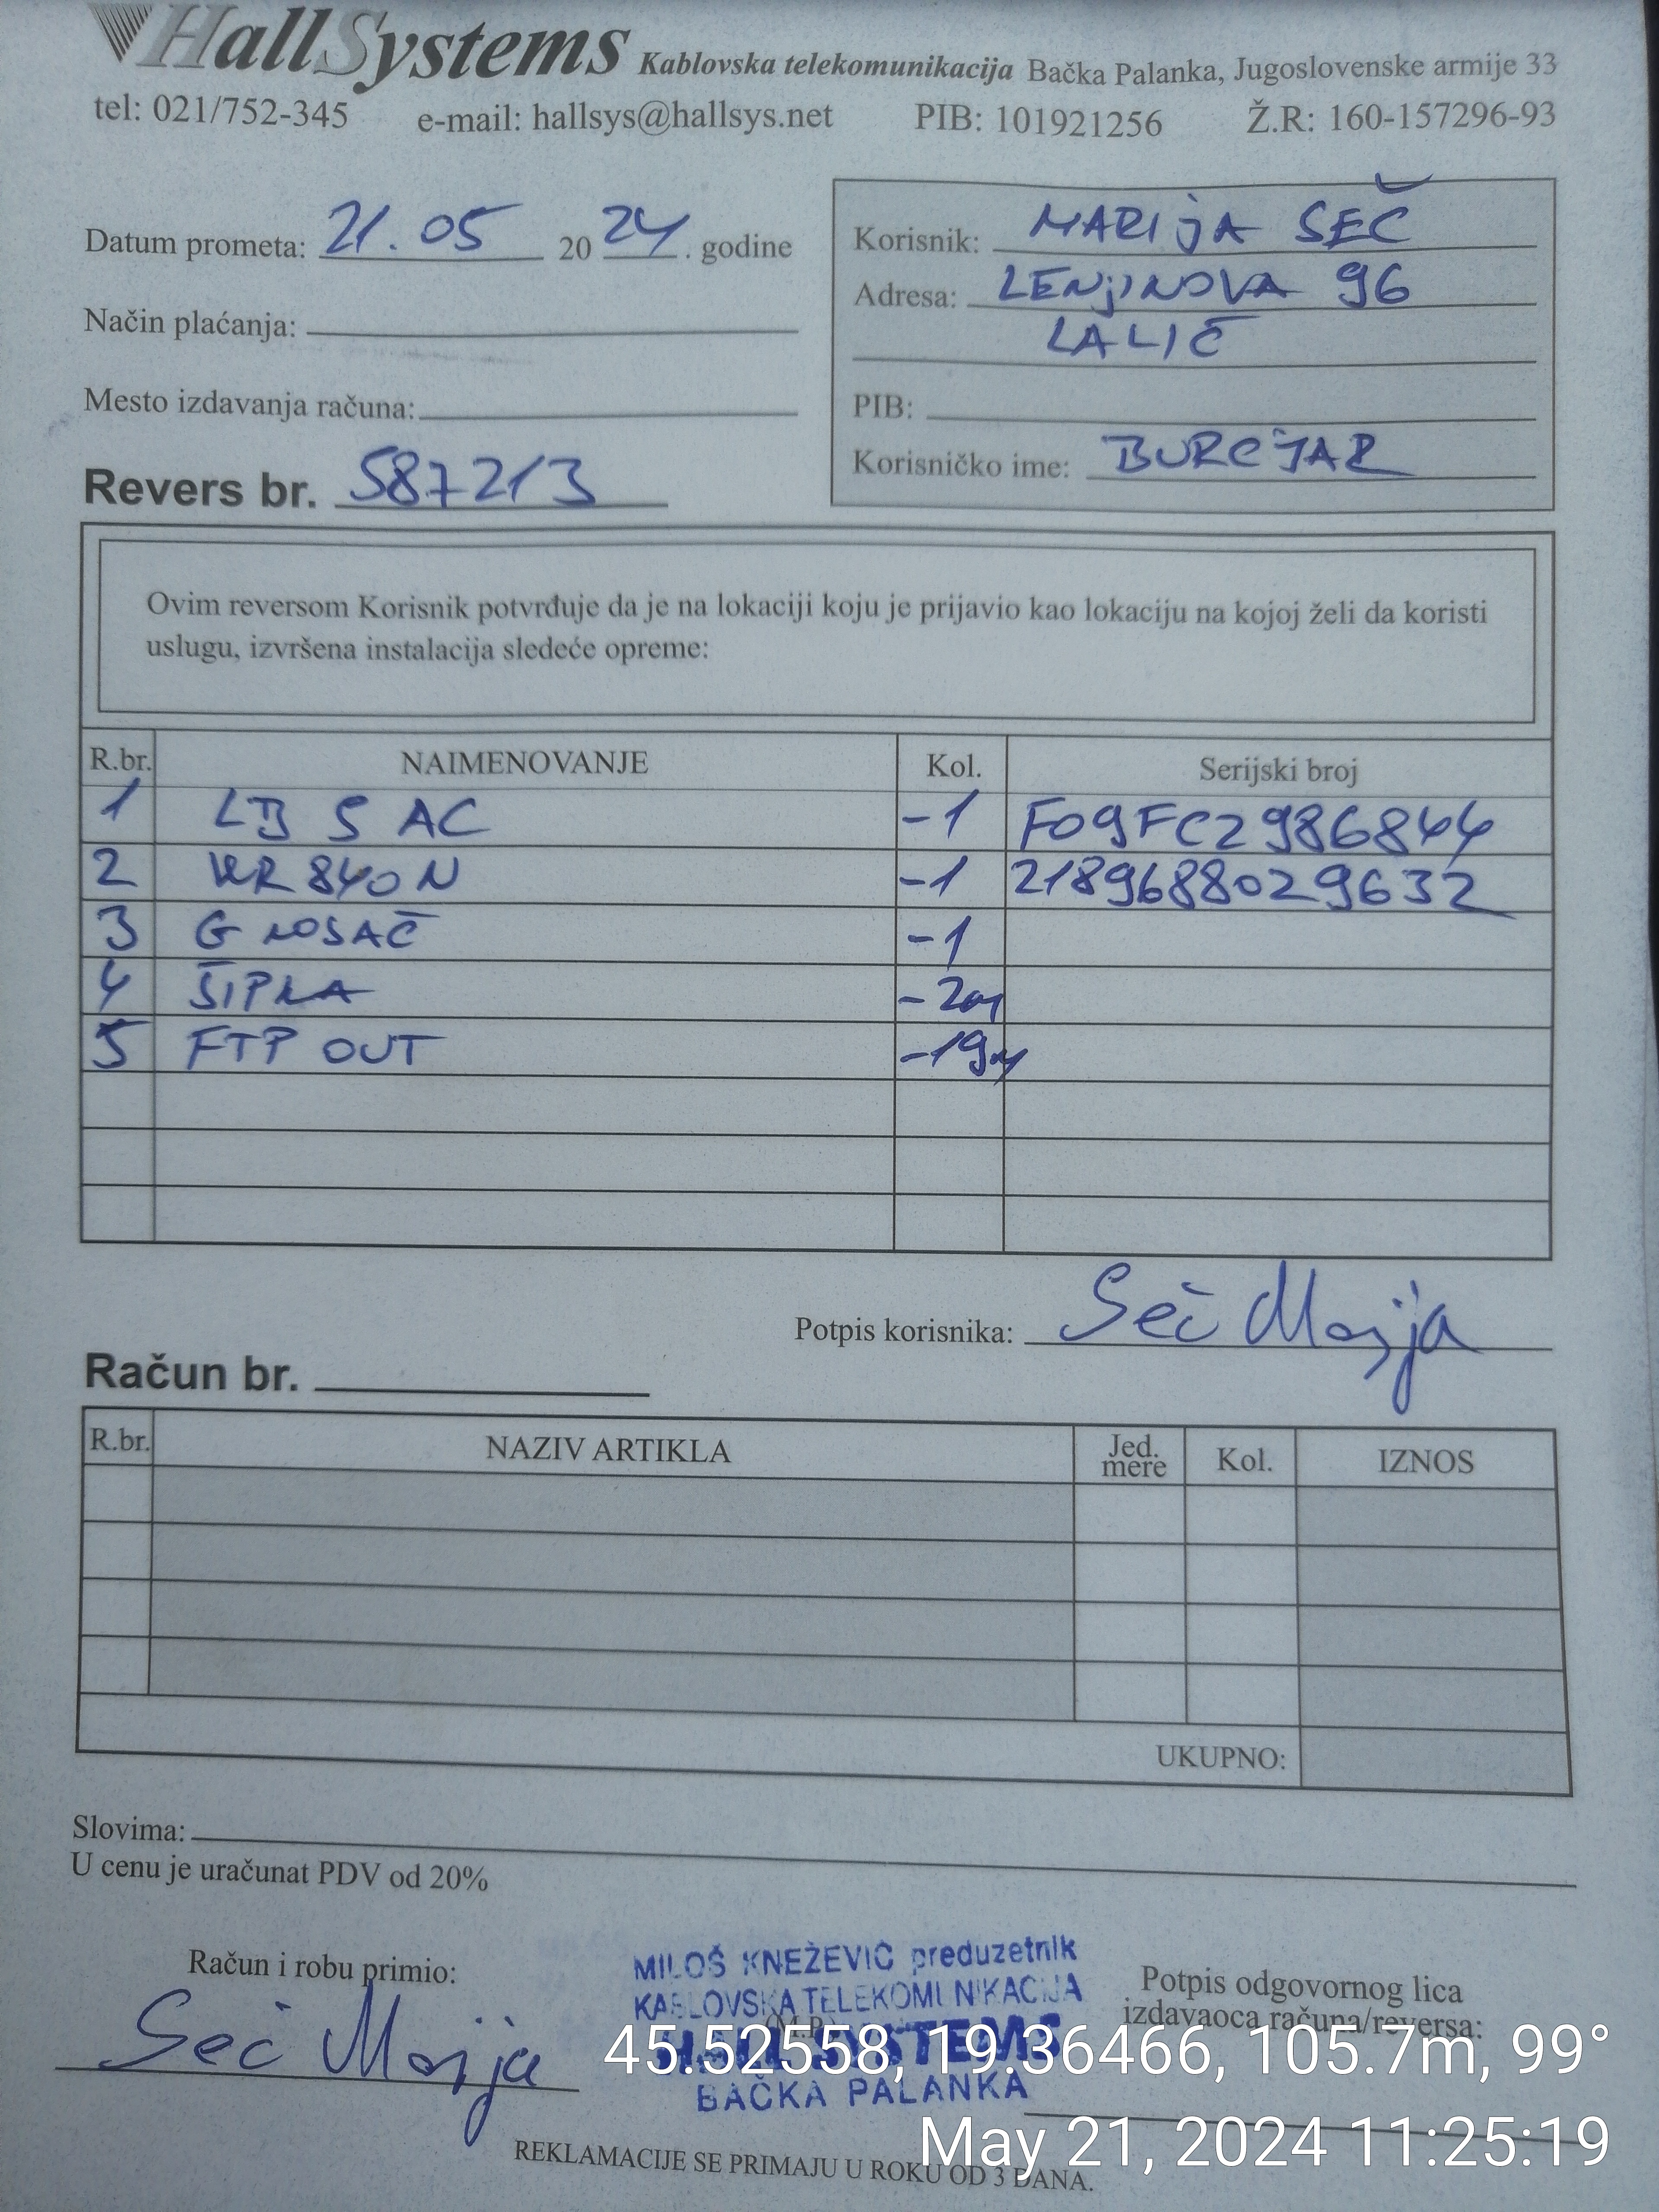 HallSystems Kablovska telekomunikacija Bačka Palanka, Jugoslovenske armije 33
tel: 021/752-345 e-mail: hallsys@hallsys.net PIB: 101921256 Ž.R: 160-157296-93
Datum prometa: 21.05 2024. godine
Način plaćanja:
Mesto izdavanja računa:
Revers br. 587213
Korisnik: MARIJA SEČ
Adresa: LENJINOVA 96
LALIĆ
PIB:
Korisničko ime: BURCJAR
Ovim reversom Korisnik potvrđuje da je na lokaciji koju je prijavio kao lokaciju na kojoj želi da koristi
uslugu, izvršena instalacija sledeće opreme:
R.br. NAIMENOVANJE Kol. Serijski broj
1 LB 5 AC -1 F09FC2986844
2 WR840N -1 2189688029632
3 G NOSAČ -1
4 ŠIPKA -2m
5 FTP OUT -19m
Potpis korisnika: Seč Marija
Račun br.
R.br. NAZIV ARTIKLA Jed. mere Kol. IZNOS
UKUPNO:
Slovima:
U cenu je uračunat PDV od 20%
Račun i robu primio:
Seč Marija
MILOŠ KNEŽEVIĆ preduzetnik
KABLOVSKA TELEKOMUNIKACIJA
(M.P.)
HALL SYSTEMS
BAČKA PALANKA
Potpis odgovornog lica
izdavaoca računa/reversa:
45.52558, 19.36466, 105.7m, 99°
May 21, 2024 11:25:19
REKLAMACIJE SE PRIMAJU U ROKU OD 3 DANA.